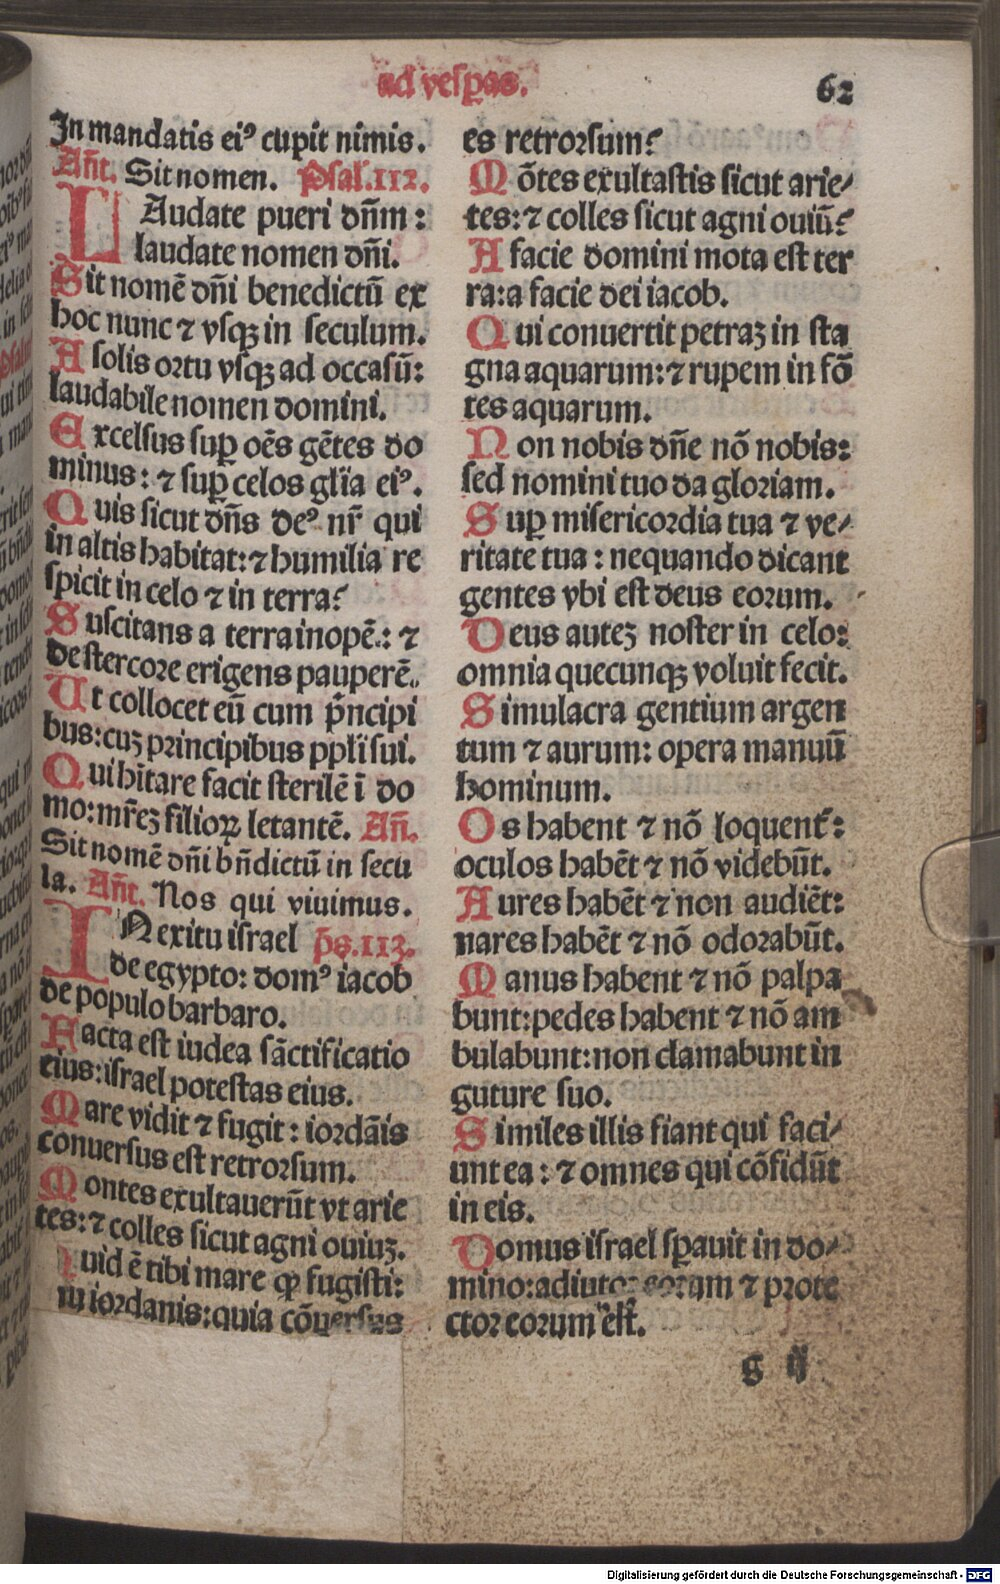 ad vesꝑas.
62
In mandatis eiꝰ cupit nimis.
Añt. Sit nomen. Psal.112.
LAudate pueri dñm :
laudate nomen dñi.
Sit nomē dñi benedictū ex
hoc nunc ⁊ vsqꝫ in seculum.
A solis ortu vsqꝫ ad occasū:
laudabile nomen domini.
Excelsus suꝑ oēs gētes do
minus: ⁊ suꝑ celos glīa eiꝰ.
Quis sicut dñs deꝰ nr̄ qui
in altis habitat: ⁊ humilia re
spicit in celo ⁊ in terra?
Suscitans a terra inopē.: ⁊
de stercore erigens pauperē.
Ut collocet eū cum pͥncipi
bus: cuꝫ principibus ppl̄i sui.
Qui hītare facit sterilē ī do
mo: mr̄eꝫ filioꝝ letantē. Añ.
Sit nomē dñi bñdictū in secu
la. Añt. Nos qui viuimus.
IN exitu israel ps.112.
de egypto: domꝰ iacob
de populo barbaro.
Facta est iudea sāctificatio
eius: israel potestas eius.
Mare vidit ⁊ fugit: iordāis
conuersus est retrorsum.
Montes exultauerūt vt arie
tes: ⁊ colles sicut agni ouiuꝫ.
Quid ē tibi mare ꝙ fugisti:
tu iordanis: quia cōuersus
es retrorsum?
Mōtes exultastis sicut arie/
tes: ⁊ colles sicut agni ouiū?
A facie domini mota est ter
ra: a facie dei iacob.
Qui conuertit petraꝫ in sta
gna aquarum: ⁊ rupem in fō
tes aquarum.
Non nobis dñe nō nobis:
sed nomini tuo da gloriam.
Suꝑ misericordia tua ⁊ ve/
ritate tua : nequando dicant
gentes vbi est deus eorum.
Deus auteꝫ noster in celo:
omnia quecunqꝫ voluit fecit.
Simulacra gentium argen
tum ⁊ aurum: opera manuū
hominum.
Os habent ⁊ nō loquentᷣ:
oculos habēt ⁊ nō videbūt.
Aures habēt ⁊ non audiēt:
nares habēt ⁊ nō odorabūt.
Manus habent ⁊ nō palpa
bunt: pedes habent ⁊ nō am
bulabunt: non clamabunt in
guture suo.
Similes illis fiant qui faci/
unt ea : ⁊ omnes qui cōfidūt
in eis.
Domus israel sꝑauit in do/
mino: adiutor eorum ⁊ prote
ctor eorum est.
g ij
Digitalisierung gefördert durch die Deutsche Forschungsgemeinschaft - DFG